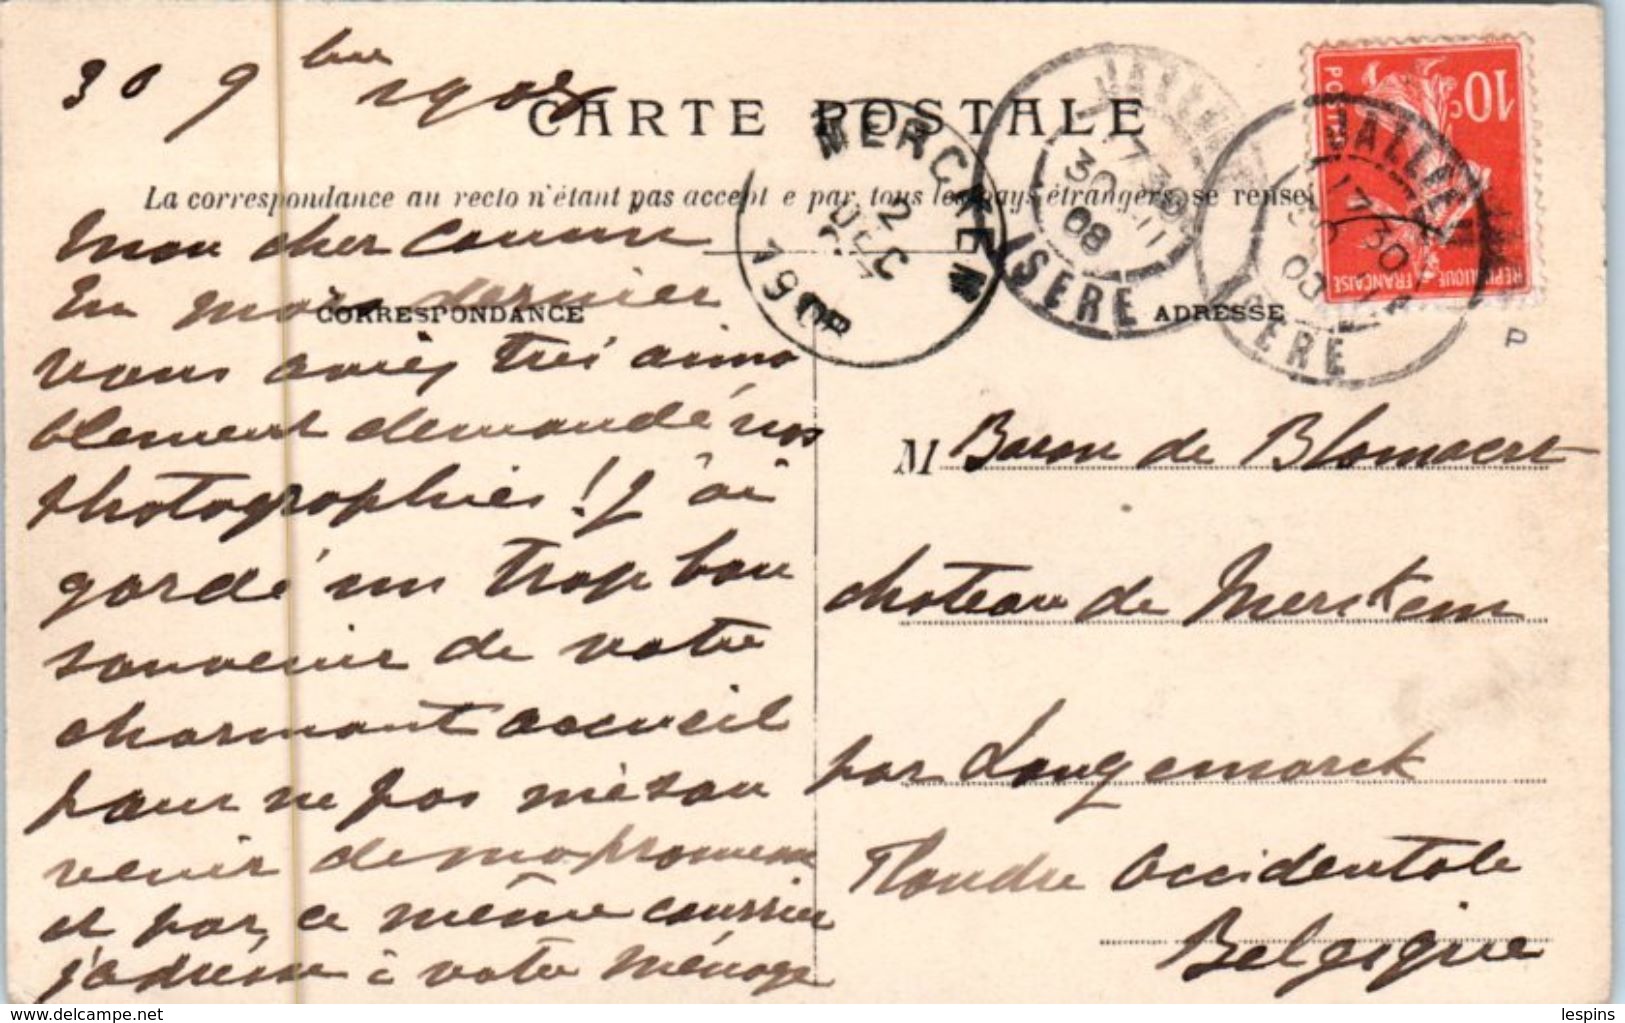 30 9bre 1908
CARTE POSTALE
La correspondance au recto n'étant pas accept e par tous les pays étrangers, se rensei
MERCKEM
2
DEC
1908
JALLIEU
17 30
30 -11
08
ISERE
JALLIEU
17 30
30
ISERE
10c
POSTES
REPUBLIQUE FRANÇAISE
P
CORRESPONDANCE
ADRESSE
Mon cher Cousin
En mars dernier
vous aviez très aima
blement demandé nos
photographies ! J'ai
gardé un trop bon
souvenir de votre
charmant accueil
pour ne pas me sou
venir de ma promesse
et par ce même courrier
j'adresse à votre ménage
M Baron de Blomaert
chateau de Merckem
par Langemarck
Flandre Occidentale
Belgique
lespins